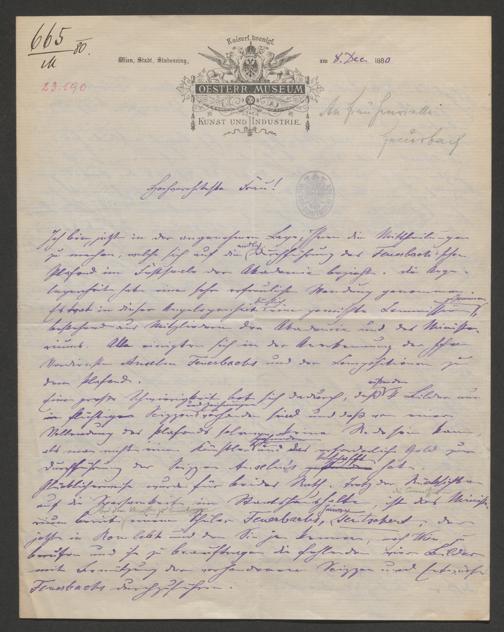 665
M 80.
23.690
Kaiserl. koenigl.
OESTERR. MUSEUM
KUNST UND INDUSTRIE.
Wien, Stadt, Stubenring,
am 8. Dec. 1880
An Frau Henriette
Feuerbach
Hochverehrteste Frau!
Ich bin jetzt in der angenehmen Lage, Ihnen die Mittheilungen
zu machen, welche sich auf die Durchführung des Feuerbach'schen
Plafond im Festsaale der Akademie bezieht. Die Ange-
legenheit habe eine sehr erfreuliche Wendung genommen.
Es trat in dieser Angelegenheit eine gemischte Commission
bestehend aus Mitgliedern der Akademie und des Ministe-
riums. Alle einigten sich in der Anerkennung der
Verdienste Anselm Feuerbachs und der Compositionen zu
dem Plafond.
Eine große Schwierigkeit bot sich dadurch, daß 4 Bilder nur
in flüchtigen Skizzen vorhanden sind und daß von einer
Vollendung des Plafonds solange keine Rede sein kann
als man nicht einen Künstler und das Geld zur
Durchführung der Skizzen Anselm's hat.
Glücklicherweise wurde für beides Rath. Trotz der Rücksicht
auf die Sparsamkeit im Staatshaushalte, ist das Ministe-
rium bereit, einen Schüler Feuerbachs, der
jetzt in Rom lebt und den Sie ja kennen, nach Wien zu
berufen und ihn zu beauftragen die fehlenden vier Bilder
mit Benützung der vorhandenen Skizzen und Entwürfe
Feuerbachs durchzuführen.